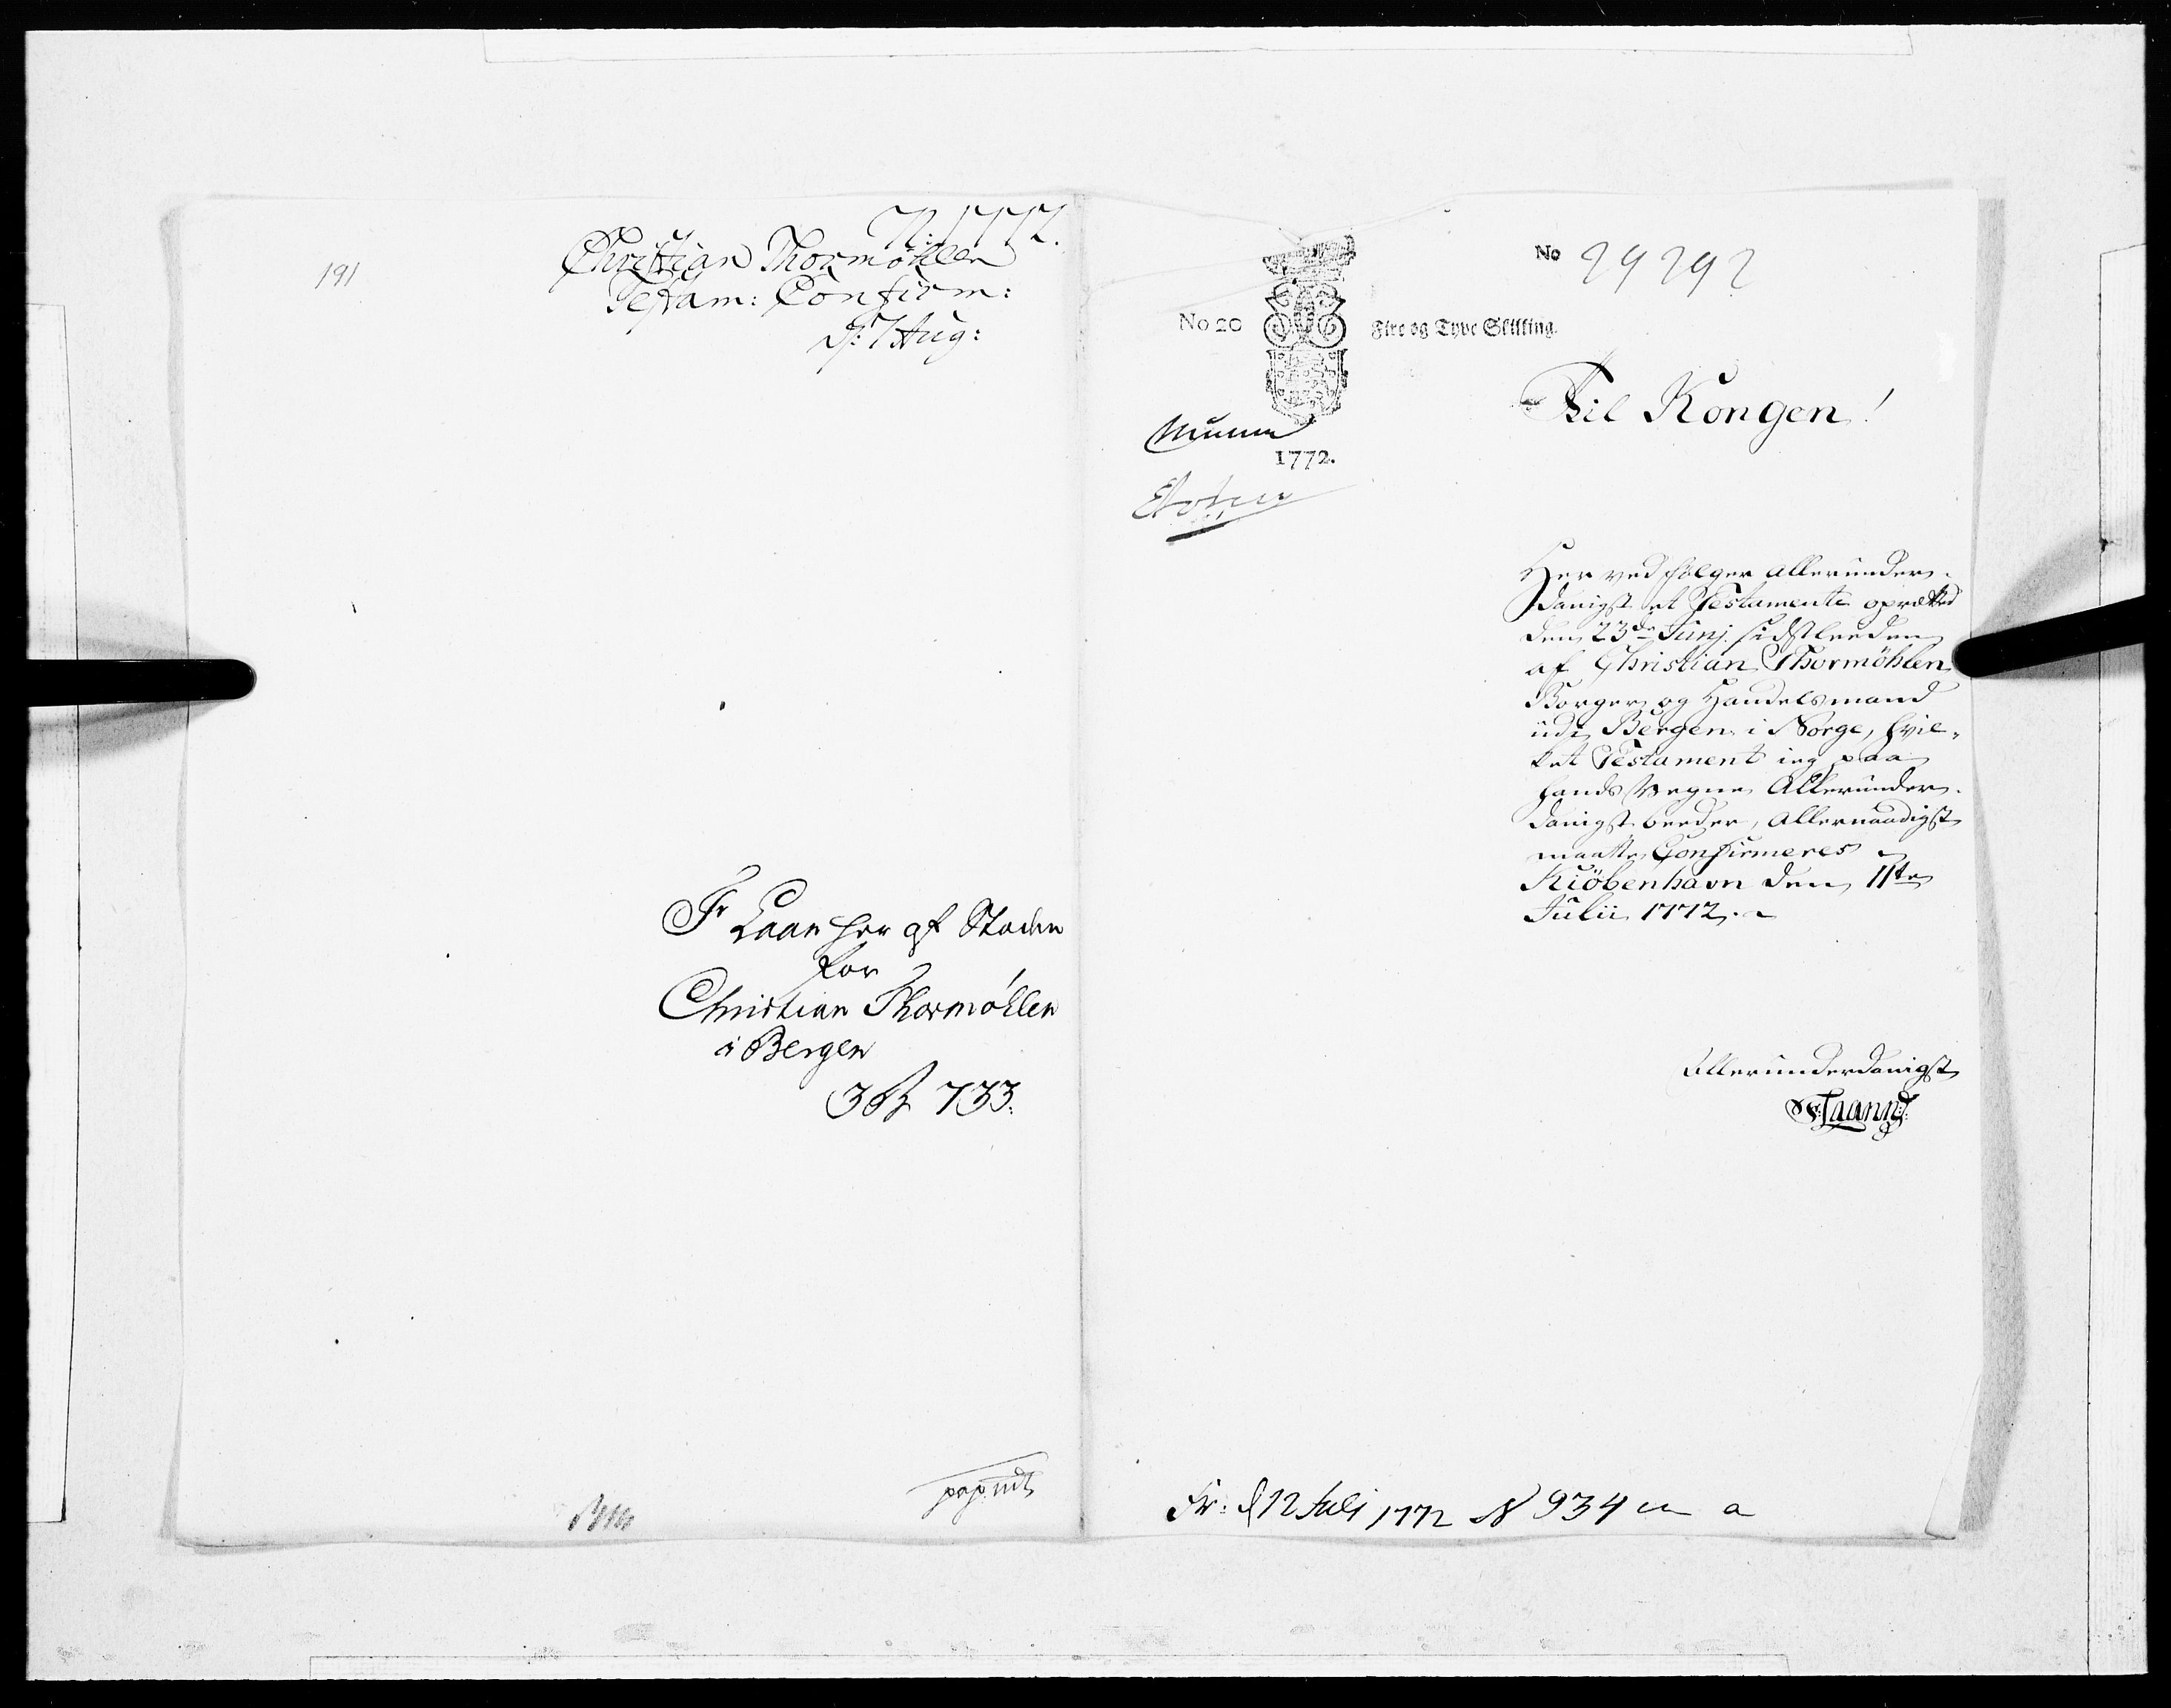 N: 1772.
Christian Thormøhlen
Testam: Confirm:
d: 7 Aug:
191
Fr Laan her af Staden
for
Christian Thormøhlen
i Bergen
3 B 733.
No 29292
No 20 Fire og Tyve Skilling.
1772.
Til Kongen!
Her ved følger allerunder-
danigst et Testamente oprettet
den 23de Junj. sidstleeden
af Christian Thormöhlen
Borger og Handelsmand
udi Bergen i Norge, hvil-
ket Testament ieg paa
hands Vegne Allerunder-
danigst beeder, Allernaadigst
maatte Confirmeres
Kiöbenhavn den 11te
Julii 1772.
Allerunderdanigst
F: Laann
Fr: d 12 Juli 1772 N 934 a